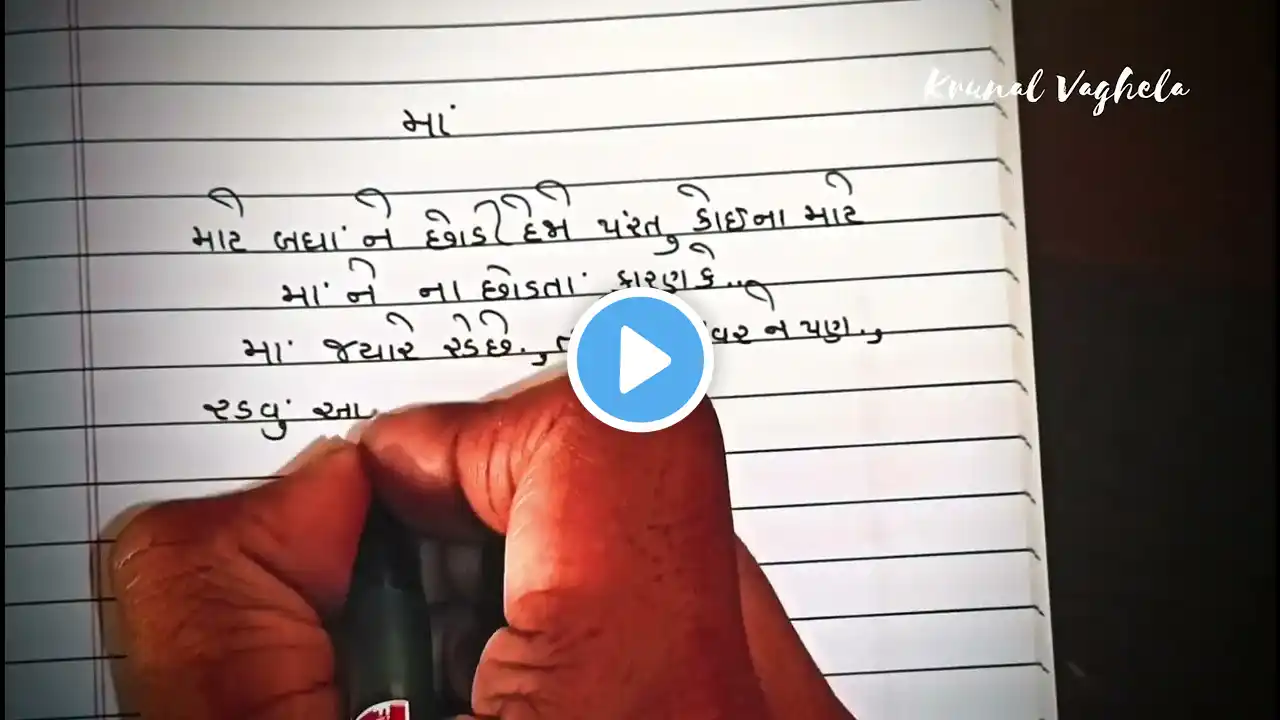 Krunal Vaghela
માં
માટે બધાં ને છોડી દેજો પરંતુ કોઈના માટે
માં ને ના છોડતાં કારણ કે..
માં જ્યારે રડે છે., ને પણ.,
રડવું આ